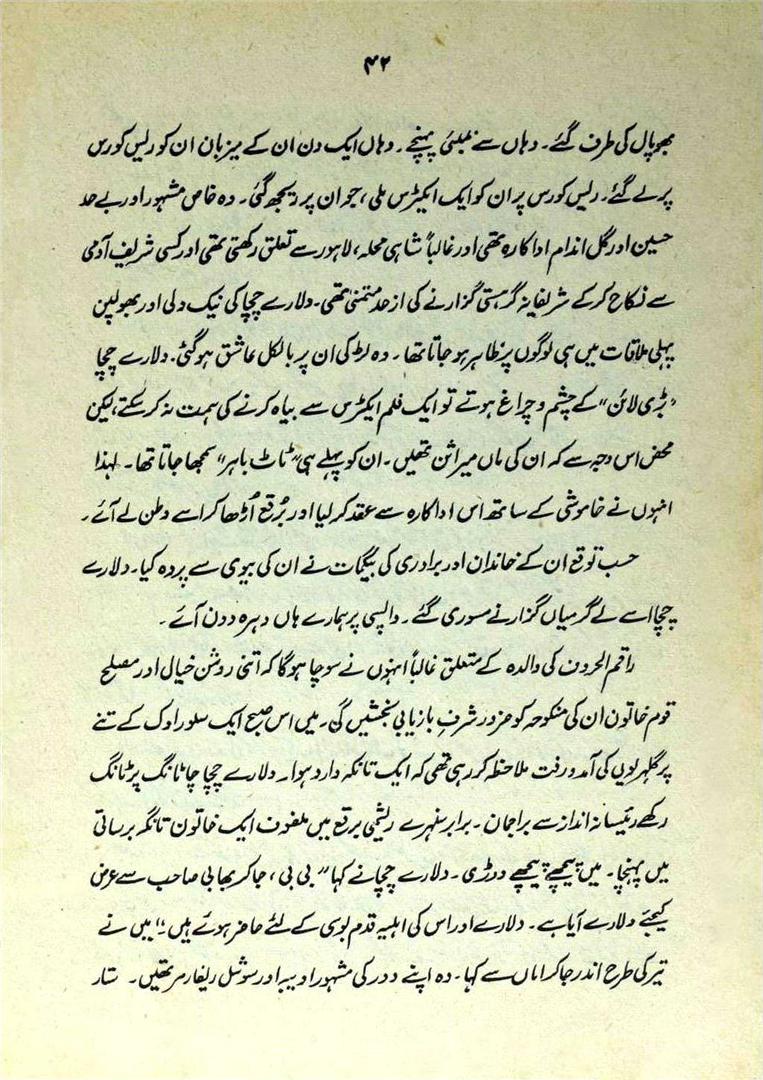 ۴۲
بھوپال کی طرف گئے۔ وہاں سے بمبئی پہنچے۔ وہاں ایک دن ان کے میزبان ان کو ریس کورس
پر لے گئے۔ ریس کورس پر ان کو ایک ایکٹرس ملی، جو ان پر ریجھ گئی۔ وہ خاص مشہور اور بے حد
حسین اور گل اندام اداکارہ تھی اور غالباً شاہی محلہ، لاہور سے تعلق رکھتی تھی اور کسی شریف آدمی
سے نکاح کر کے شریفانہ گرہستی گزارنے کی از حد متمنی تھی۔ دلارے چچا کی نیک دلی اور بھولپن
پہلی ملاقات میں ہی لوگوں پر ظاہر ہو جاتا تھا۔ وہ لڑکی ان پر بالکل عاشق ہو گئی۔ دلارے چچا
"بڑی لائن" کے چشم و چراغ ہوتے تو ایک فلم ایکٹرس سے بیاہ کرنے کی ہمت نہ کر سکتے، لیکن
محض اس وجہ سے کہ ان کی ماں میراثن تھیں۔ ان کو پہلے ہی "ٹاٹ باہر" سمجھا جاتا تھا۔ لہٰذا
انہوں نے خاموشی کے ساتھ اس اداکارہ سے عقد کر لیا اور برقع اُڑھا کر اسے وطن لے آئے۔
حسب توقع ان کے خاندان اور برادری کی بیگمات نے ان کی بیوی سے پردہ کیا۔ دلارے
چچا اسے لے گرمیاں گزارنے مسوری گئے۔ واپسی پر ہمارے ہاں دہرہ دون آئے۔
راقم الحروف کی والدہ کے متعلق غالباً انہوں نے سوچا ہو گا کہ اتنی روشن خیال اور مصلح
قوم خاتون ان کی منکوحہ کو ضرور شرفِ بازیابی بخشیں گی۔ میں اس صبح ایک سلور اوک کے تنے
پر گلہریوں کی آمد و رفت ملاحظہ کر رہی تھی کہ ایک تانگہ وارد ہوا۔ دلارے چچا ٹانگ پر ٹانگ
رکھے رئیسانہ انداز سے براجمان۔ برابر سنہرے ریشمی برقع میں ملفوف ایک خاتون تانگہ برساتی
میں پہنچا۔ میں پیچھے پیچھے دوڑی۔ دلارے چچا نے کہا "بی بی، جا کر بھابی صاحب سے عرض
کیجئے دلارے آیا ہے۔ دلارے اور اس کی اہلیہ قدم بوسی کے لئے حاضر ہوئے ہیں۔" میں نے
تیر کی طرح اندر جا کر اماں سے کہا۔ وہ اپنے دور کی مشہور ادیبہ اور سوشل ریفارمر تھیں۔ ستار